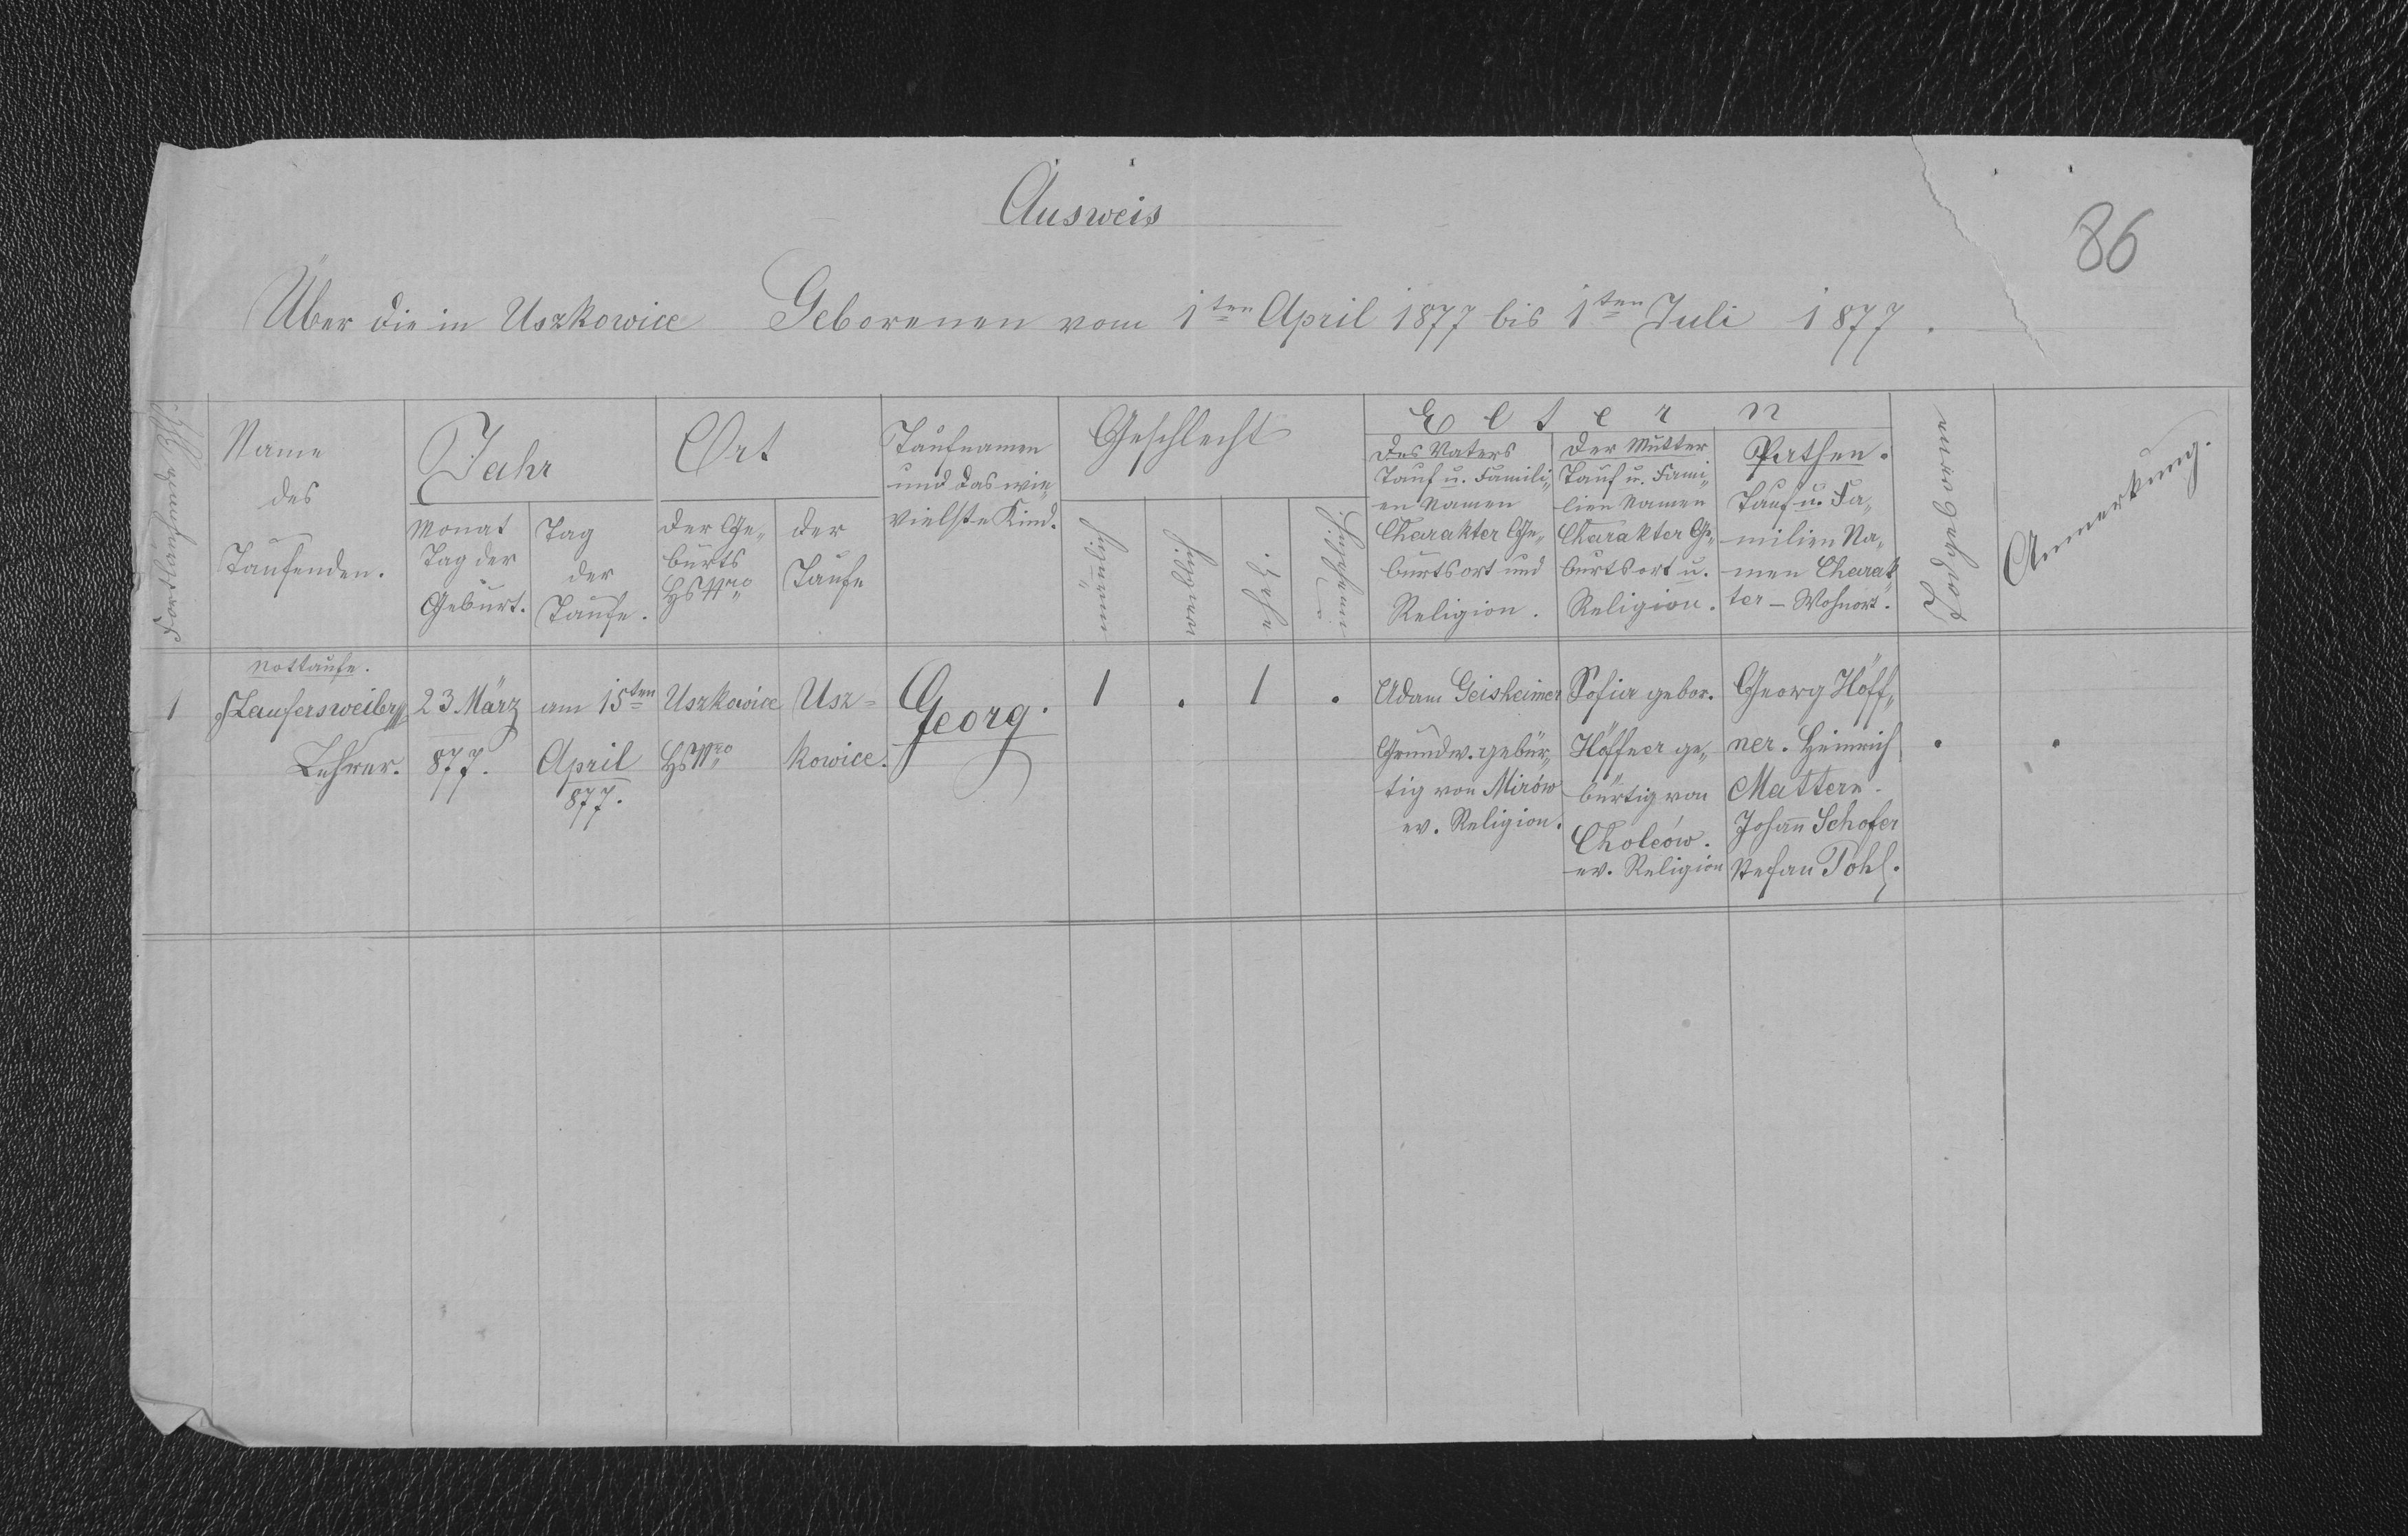 Ausweis
86
Über die in Uszkowice Geborenen vom 1ten April 1877 bis 1ten Juli 1877.
Name
des
Taufenden.
Jahr
Monat
Tag der
Geburt.
Tag
der
Taufe.
Ort
der Ge„
burts
HsNro
der
Taufe
Taufnamen
und das wie„
vielste Kind.
Geschlecht
männlich
weiblich
ehel.
unehelich
Eltern
des Vaters
Tauf u. Famili„
en Namen
Charakter Ge„
burtsort und
Religion.
der Mutter
Tauf u. Fami„
lien Namen
Charakter Ge„
burtsort u.
Religion.
Pathen.
Tauf u. Fa„
milien Na„
men Charak„
ter – Wohnort.
Todtgeborne
Anmerkung.
1
Nottaufe.
Laufersweiler
Lehrer.
23 März
877.
am 15ten
April
877.
Uszkowice
HsNro
Usz=
kowice.
Georg.
1 . 1 .
Adam Geisheimer
Grundw. gebür„
tig von Mirów
ev. Religion.
Sofia gebor.
Höffner ge„
bürtig von
Cholców.
ev. Religion
Georg Höff„
ner. Heinrich
Mattern.
Johann Schofer
Stefan Pohl.